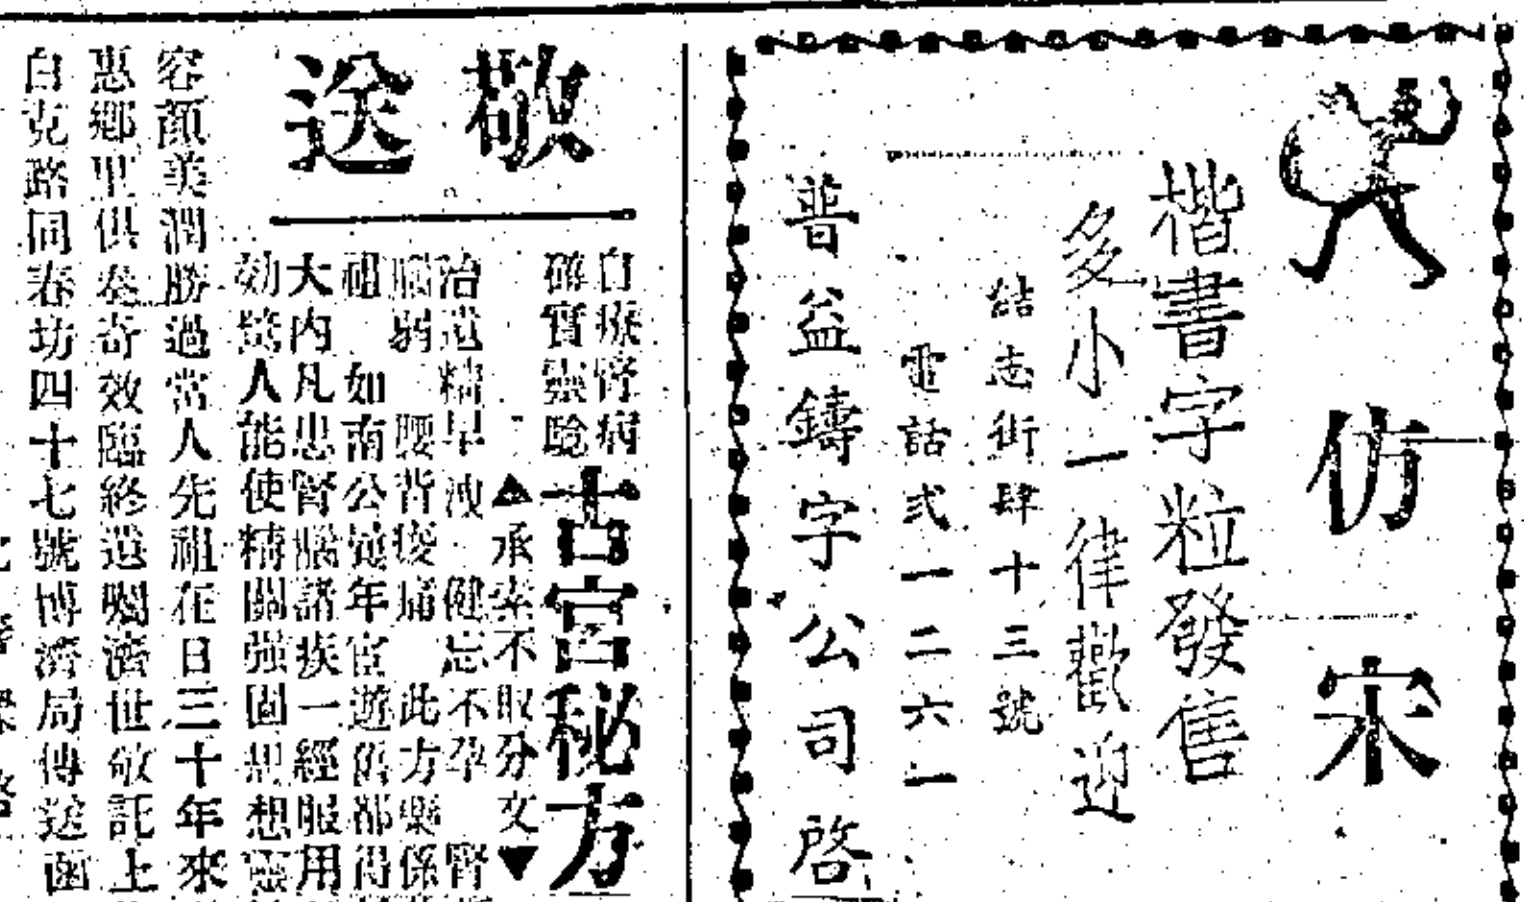 仿宋
楷書字粒發售
多小一律歡迎
結志街肆十三號
電話弍一二六一
普益鑄字公司啓
敬送
自療腎病
確實靈驗
古宮秘方
▲承索不取分文▼
治遺精早洩 健忘不孕 腎
腦弱 腰背痠痛 此方藥係
祖 如南公 年宦遊舊都得
大內凡患腎虧諸疾一經服用
効 人能使精關强固思想靈
容顏美潤勝過常人先祖在日三十年來
惠鄉里俱奏奇效臨終遺囑濟世敬託上
白克路同春坊四十七號博濟局傳送函